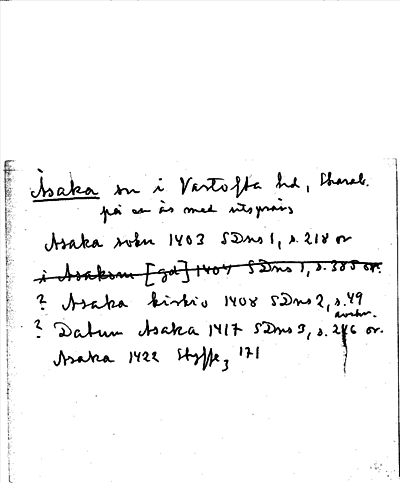 Åsaka sn i Vartofta hd, Skarab.
på en ås med utsprång
Asaka sokn 1403 SDns 1, s. 218 or
i Asakom [gd] 1404 SDns 1, s. 385 or.
? Asaka kirkio 1408 SDns 2, s. 49
avskr.
? Datum Asaka 1417 SDns 3, s. 246 or.
Asaka 1422 Styffe 3 171